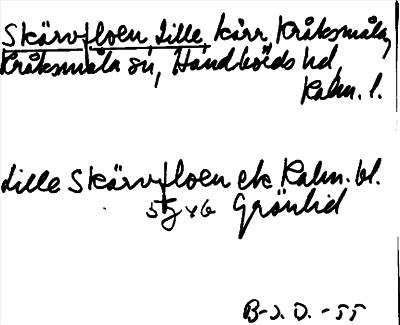 Skärvfloen, Lille, kärr, Kråksmåla,
Kråksmåla sn, Handbörds hd,
Kalm. l.
Lille Skärvfloen ek Kalm. bl.
5g x6 Grönlid
B-s. D. -55